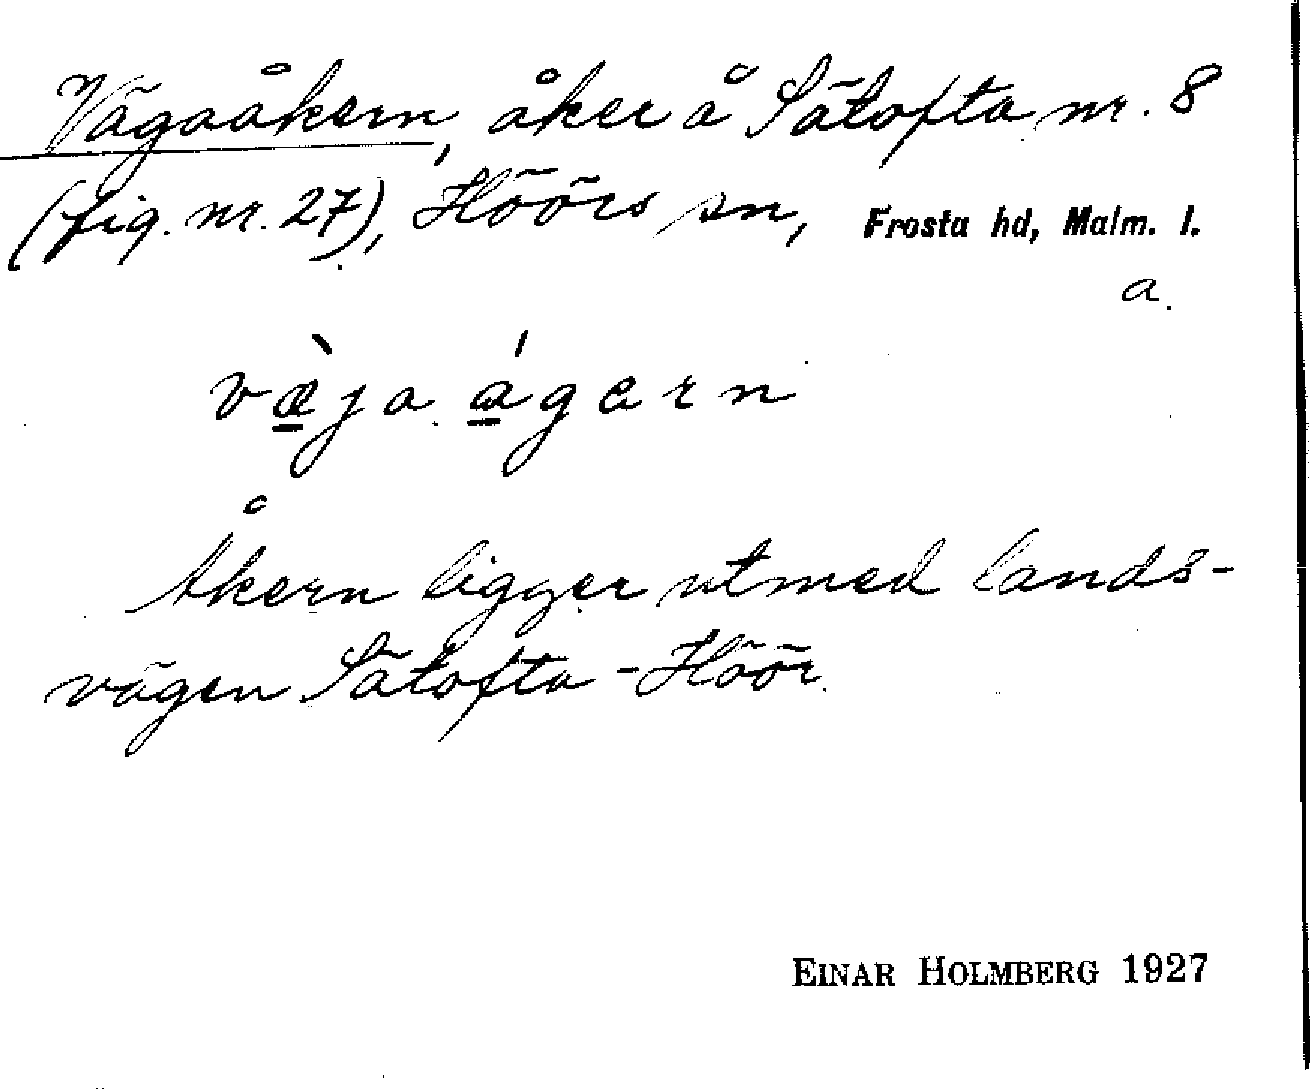 Vägaåkern, åker å Sätofta nr. 8
(fig. nr. 27), Höörs sn, Frosta hd, Malm. l.
a.
væ̀ja ágern
Åkern ligger utmed lands-
vägen Sätofta - Höör.
EINAR HOLMBERG 1927